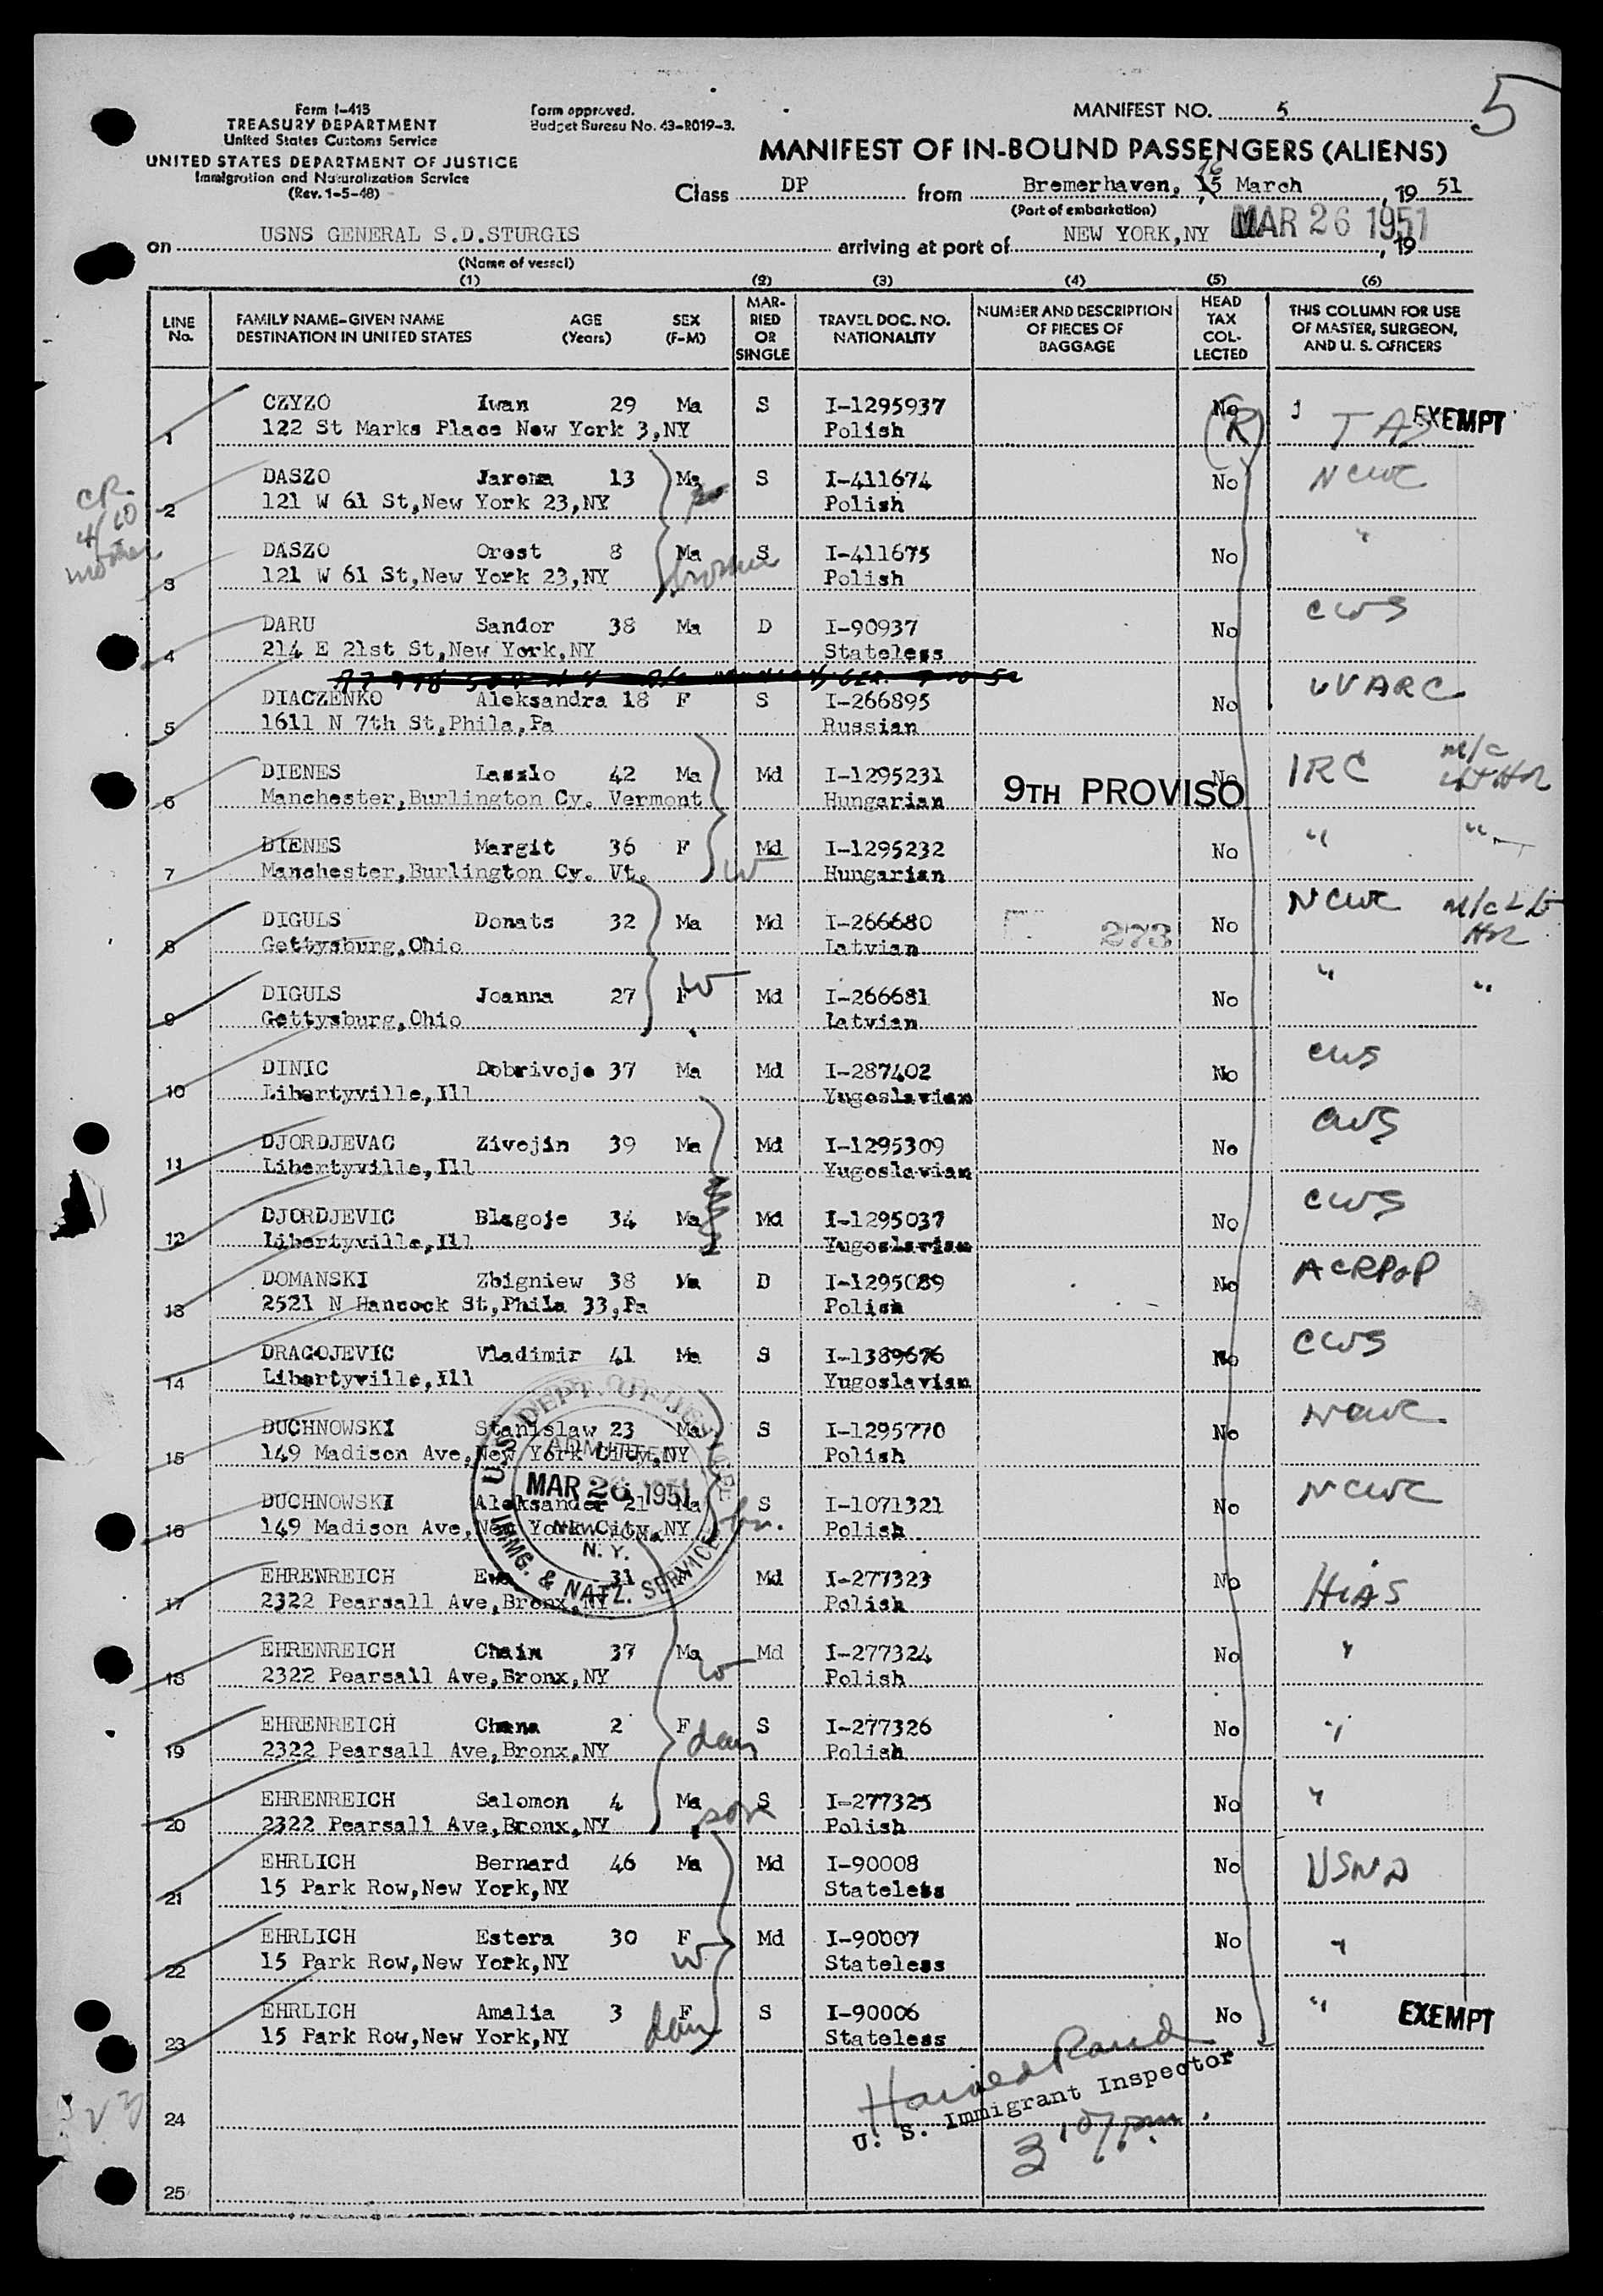 5
Form I-415
TREASURY DEPARTMENT
United States Customs Service
UNITED STATES DEPARTMENT OF JUSTICE
Immigration and Naturalization Service
(Rev. 1-5-48)
Form approved.
Budget Bureau No. 43-R019-3.
MANIFEST NO. 5
MANIFEST OF IN-BOUND PASSENGERS (ALIENS)
16
Class DP from Bremerhaven, 15 March, 19 51
(Port of embarkation)
on USNS GENERAL S.D.STURGIS arriving at port of NEW YORK,NY MAR 26 1951, 19
(Name of vessel)
(1) (2) (3) (4) (5) (6)
LINE No. FAMILY NAME-GIVEN NAME DESTINATION IN UNITED STATES AGE (Years) SEX (F-M) MAR-RIED OR SINGLE TRAVEL DOC. NO. NATIONALITY NUMBER AND DESCRIPTION OF PIECES OF BAGGAGE HEAD TAX COL-LECTED THIS COLUMN FOR USE OF MASTER, SURGEON, AND U. S. OFFICERS
CZYZO Iwan 29 Ma S I-1295937 No (R) EXEMPT
1 122 St Marks Place New York 3,NY Polish
DASZO Jarema 13 Ma S I-411674 No NCWC
2 121 W 61 St,New York 23,NY Polish
CR. 4/60 mother
DASZO Orest 8 Ma S I-411675 No "
3 121 W 61 St,New York 23,NY Polish
DARU Sandor 38 Ma D I-90937 No CWS
4 214 E 21st St,New York,NY Stateless
DIACZENKO Aleksandra 18 F S I-266895 No
5 1611 N 7th St,Phila,Pa Russian
DIENES Laszlo 42 Ma Md I-1295231 9TH PROVISO No IRC m/c
6 Manchester,Burlington Cy. Vermont Hungarian
DIENES Margit 36 F Md I-1295232 No " "
7 Manchester,Burlington Cy. Vt. W Hungarian
DIGULS Donats 32 Ma Md I-266680 273 No NCWC m/c
8 Gettysburg,Ohio Latvian
DIGULS Joanna 27 F W Md I-266681 No " "
9 Gettysburg,Ohio Latvian
DINIC Dobrivoje 37 Ma Md I-287402 No CWS
10 Libertyville,Ill Yugoslavian
DJORDJEVAC Zivojin 39 Ma Md I-1295309 No CWS
11 Libertyville,Ill Yugoslavian
DJORDJEVIC Blagoje 34 Ma Md I-1295037 No CWS
12 Libertyville,Ill Yugoslavian
DOMANSKI Zbigniew 38 Ma D I-1295089 No ACRPoP
13 2521 N Hancock St,Phila 33,Pa Polish
DRAGOJEVIC Vladimir 41 Ma S I-1389676 No CWS
14 Libertyville,Ill Yugoslavian
DUCHNOWSKI Stanislaw 23 Ma S I-1295770 No NCWC
15 149 Madison Ave,New York City,NY Polish
DUCHNOWSKI Aleksander 21 Ma S I-1071321 No NCWC
16 149 Madison Ave,New York City,NY bro. Polish
U. S. DEPT. OF JUSTICE
ADMITTED
MAR 26 1951
NEW YORK
N. Y.
IMMG. & NATZ. SERVICE
EHRENREICH Ewa 31 Md I-277323 No HIAS
17 2322 Pearsall Ave,Bronx,NY Polish
EHRENREICH Chaim 37 Ma W Md I-277324 No "
18 2322 Pearsall Ave,Bronx,NY Polish
EHRENREICH Chana 2 F dau S I-277326 No "
19 2322 Pearsall Ave,Bronx,NY Polish
EHRENREICH Salomon 4 Ma son S I-277325 No "
20 2322 Pearsall Ave,Bronx,NY Polish
EHRLICH Bernard 46 Ma Md I-90008 No USNA
21 15 Park Row,New York,NY Stateless
EHRLICH Estera 30 F Md I-90007 No "
22 15 Park Row,New York,NY W Stateless
EHRLICH Amalia 3 F S I-90006 No " EXEMPT
23 15 Park Row,New York,NY dau Stateless
23
24
Harold Rand
U. S. Immigrant Inspector
3:07 pm.
25